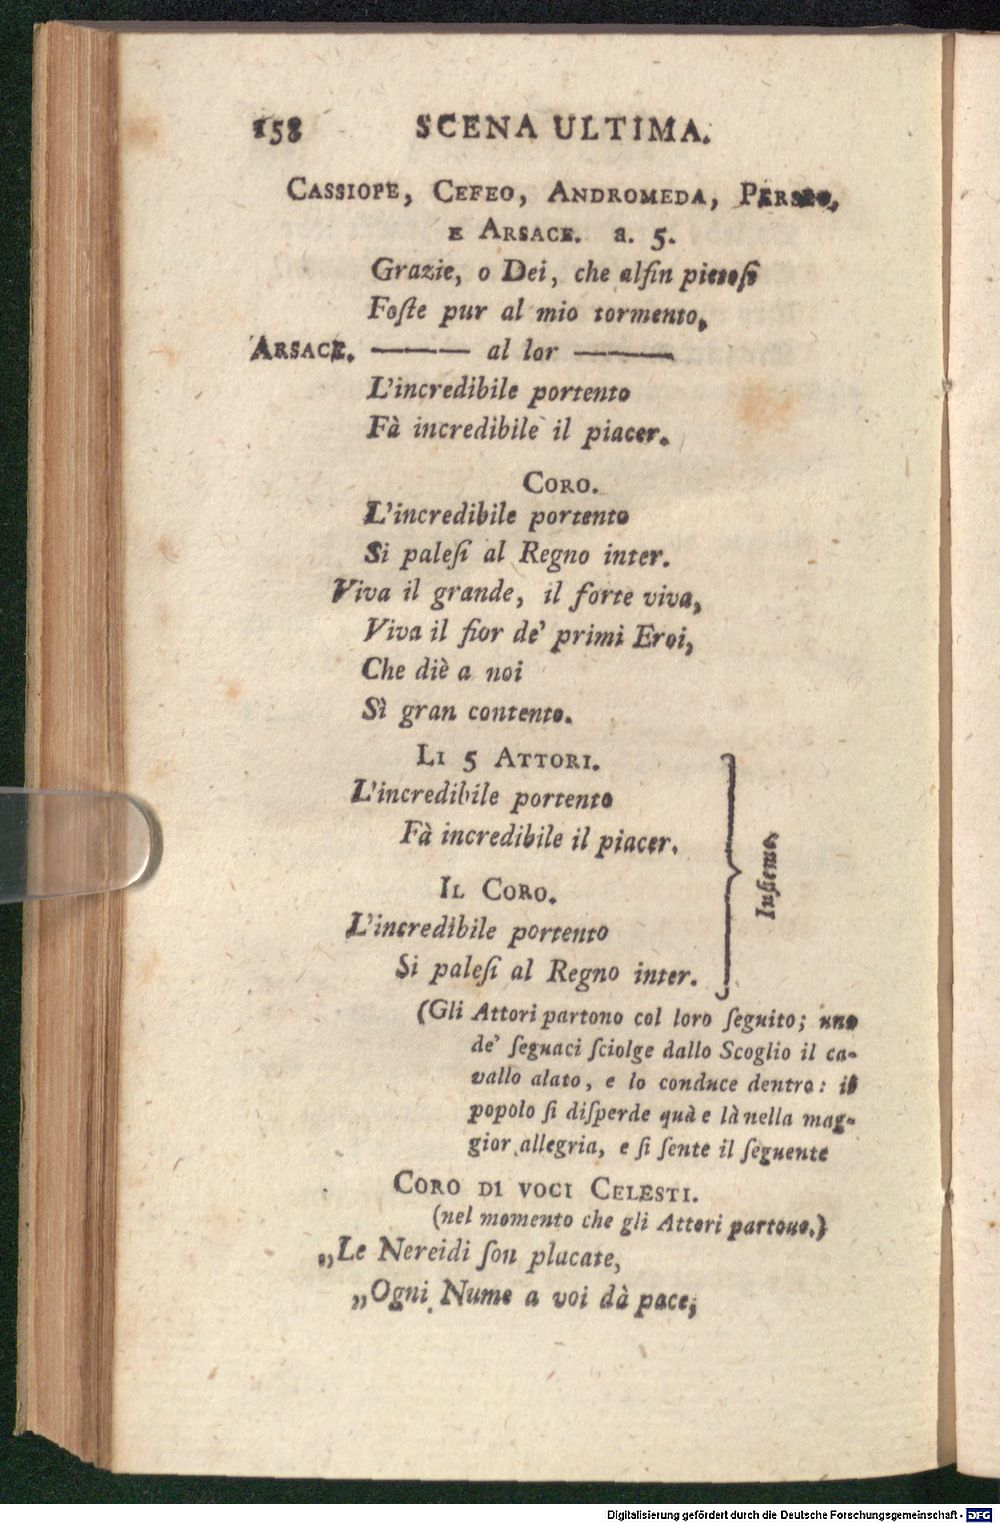 158 SCENA ULTIMA.
CASSIOPE, CEFEO, ANDROMEDA, PERSEO,
E ARSACE. a. 5.
Grazie, o Dei, che alfin pietoſi
Foſte pur al mio tormento,
ARSACE. ——— al lor ———
L'incredibile portento
Fà incredibile il piacer.
CORO.
L'incredibile portento
Si paleſi al Regno inter.
Viva il grande, il forte viva,
Viva il fior de' primi Eroi,
Che diè a noi
Sì gran contento.
LI 5 ATTORI.
L'incredibile portento
Fà incredibile il piacer.
IL CORO.
L'incredibile portento
Si paleſi al Regno inter.
Inſieme,
(Gli Attori partono col loro ſeguito; uno
de' ſeguaci ſciolge dallo Scoglio il ca-
vallo alato, e lo conduce dentro: il
popolo ſi diſperde quà e là nella mag-
gior allegria, e ſi ſente il ſeguente
CORO DI VOCI CELESTI.
(nel momento che gli Attori partono.)
„Le Nereidi ſon placate,
„Ogni Nume a voi dà pace;
Digitalisierung gefördert durch die Deutsche Forschungsgemeinschaft - DFG